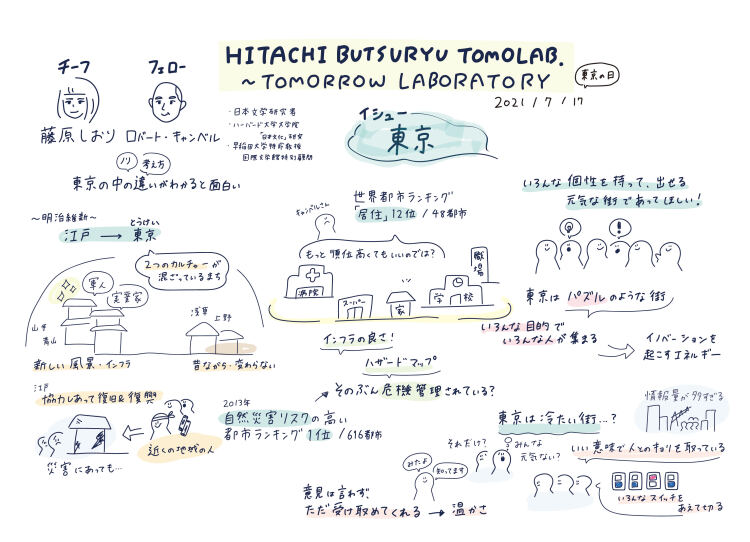 HITACHI BUTSURYU TOMOLAB.
~TOMORROW LABORATORY
東京の日
2021/7/17
チーフ
フェロー
藤原しおり
ロバート・キャンベル
・日本文学研究者
・ハーバード大学大学院
「日本文化」研究
・早稲田大学特命教授
国際文学館特別顧問
イシュー
東京
ノリ
考え方
東京の中の違いがわかると面白い
~明治維新~
江戸 → 東京
とうけい
2つのカルチャーが
混ざっているまち
軍人
実業家
山手
青山
浅草
上野
新しい風景・インフラ
昔ながら・変わらない
江戸
協力しあって復旧&復興
災害にあっても…
近くの地域の人
世界都市ランキング
「居住」12位/48都市
キャンベルさん
もっと順位高くてもいいのでは?
病院
スーパー
家
学校
職場
インフラの良さ!
ハザードマップ
そのぶん危機管理されている?
2013年
自然災害リスクの高い
都市ランキング1位/616都市
いろんな個性を持って、出せる
元気な街であってほしい!
東京はパズルのような街
いろんな目的で
いろんな人が集まる
イノベーションを
起こすエネルギー
東京は冷たい街…?
情報量が多すぎる
それだけ?
みんな
元気ない?
いい意味で人とのキョリを取っている
みたよ
知ってます
意見は言わず、
ただ受け止めてくれる → 温かさ
いろんなスイッチを
あえて切る